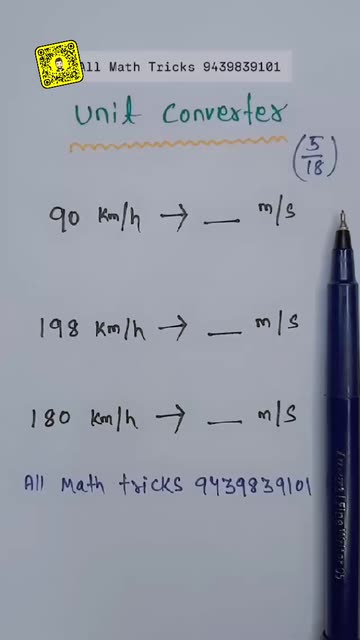 All Math Tricks 9439839101
Unit Converter
(5/18)
90 Km/h → __ m/s
198 Km/h → __ m/s
180 Km/h → __ m/s
All Math tricks 9439839101